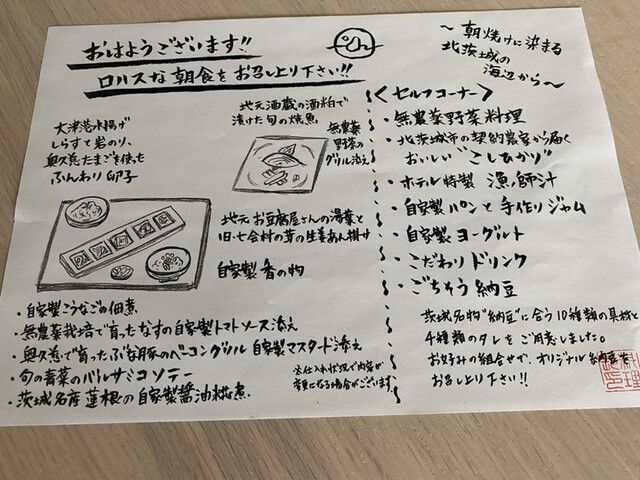 おはようございます!!
ロハスな朝食をお召し上り下さい!!
〜朝焼けに染まる
北茨城の
海辺から〜
大津港水揚げ
しらすと岩のり、
奥久慈たまごを使った
ふんわり卵子
地元酒蔵の酒粕で
漬けた旬の焼魚
無農薬
野菜の
グリル添え
地元お豆腐屋さんの湯葉と
旧・七会村の芽の生姜あん掛け
自家製香の物
・自家製こうなごの佃煮
・無農薬栽培で育ったなすの自家製トマトソース添え
・奥久慈で育ったぶな豚のベーコングリル 自家製マスタード添え
・旬の青菜のバルサミコソテー
・茨城名産蓮根の自家製醤油糀煮
※仕入れ状況で内容が
変更になる場合がございます。
＜セルフコーナー＞
・無農薬野菜料理
・北茨城市の契約農家から届く
おいしい"こしひかり"
・ホテル特製 漁師汁
・自家製パンと手作りジャム
・自家製ヨーグルト
・こだわりドリンク
・ごちそう納豆
茨城名物"納豆"に合う10種類の具材と
4種類のタレをご用意しました。
お好みの組合せで、オリジナル納豆を
お召し上り下さい!!